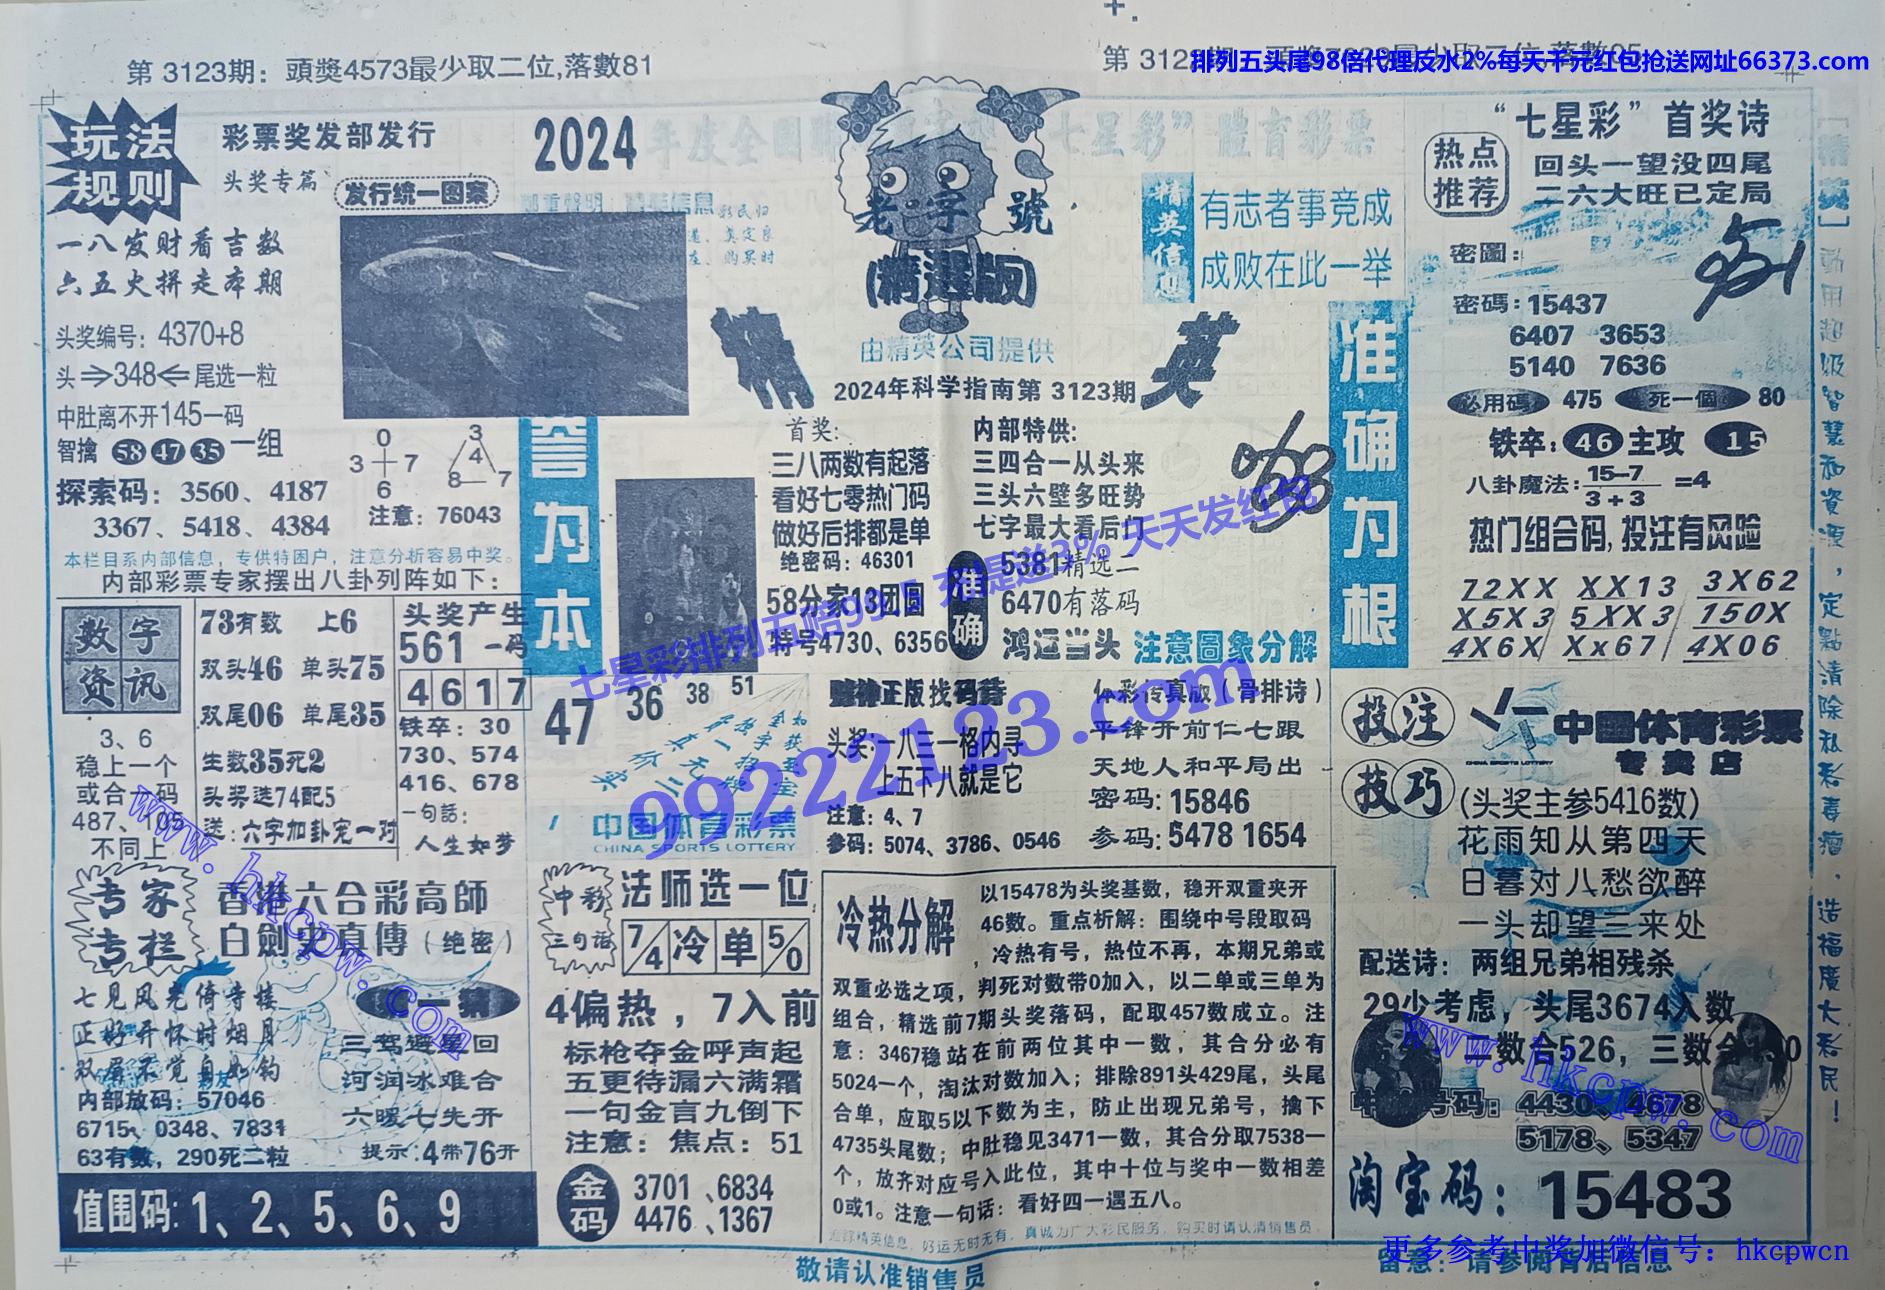 第 3123期：頭獎4573最少取二位,落數81
排列五头尾98倍代理反水2%每天千元红包抢送网址66373.com
玩法
规则
彩票奖发部发行
头奖专篇
发行统一图案
一八发财看吉数
六五火拼走本期
头奖编号: 4370+8
头⇒348⇐尾选一粒
中肚离不开145一码
智擒 58 47 35 一组
探索码: 3560、4187
3367、5418、4384
0
3 7
6
3
4
8 7
注意: 76043
本栏目系内部信息，专供特困户，注意分析容易中奖。
内部彩票专家摆出八卦列阵如下:
数字
资讯
3、6
稳上一个
或合一码
487、105
不同上
73有数 上6
双头46 单头75
双尾06 单尾35
生数35死2
头奖选74配5
送:六字加卦宠一对
头奖产生
561 一码
4 6 1 7
铁卒: 30
730、574
416、678
一句話:
人生如梦
专家
专栏
香港六合彩高師
白劍 真傳（绝密）
七见风光倚寺楼
正好开怀时烟月
双屏不觉自如钓
内部放码: 57046
6715、0348、7831
63有数，290死二粒
三驾避星回
河润冰难合
六暖七先开
提示:4带76开
值围码: 1、2、5、6、9
2024
年度全国 “七星彩”體育彩票
老字號
(精選版)
由精英公司提供
2024年科学指南第 3123期
精英
精英信息
有志者事竞成
成败在此一举
誉为本
准确为根
首奖:
三八两数有起落
看好七零热门码
做好后排都是单
绝密码: 46301
58分家13团圆
特号4730、6356
内部特供:
三四合一从头来
三头六壁多旺势
七字最大看后门
准确
5381精选二
6470有落码
鸿运当头 注意圖象分解
47 36 38 51
中国体育彩票
CHINA SPORTS LOTTERY
赌神正版找码诗
头奖一八三一格内寻
上五下八就是它
注意: 4、7
参码: 5074、3786、0546
体彩传真版（骨排诗）
平锋开前仁七跟
天地人和平局出
密码: 15846
参码: 5478 1654
中彩
三句话
法师选一位
7/4 冷 单 5/0
4偏热，7入前
标枪夺金呼声起
五更待漏六满霜
一句金言九倒下
注意: 焦点: 51
金码
3701、6834
4476、1367
冷热分解
以15478为头奖基数，稳开双重夹开
46数。重点析解: 围绕中号段取码
，冷热有号，热位不再，本期兄弟或
双重必选之项，判死对数带0加入，以二单或三单为
组合，精选前7期头奖落码，配取457数成立。注
意: 3467稳站在前两位其中一数，其合分必有
5024一个，淘汰对数加入；排除891头429尾，头尾
合单，应取5以下数为主，防止出现兄弟号，擒下
4735头尾数；中肚稳见3471一数，其合分取7538一
个，放齐对应号入此位，其中十位与奖中一数相差
0或1。注意一句话: 看好四一遇五八。
好运无时无有，真诚为广大彩民服务，购买时请认清销售员
敬请认准销售员
“七星彩”首奖诗
热点
推荐
回头一望没四尾
二六大旺已定局
密圖:
密碼: 15437
6407 3653
5140 7636
必用碼 475 死一個 80
铁卒: 46 主攻 15
八卦魔法: 15-7 / 3+3 =4
热门组合码,投注有风险
72XX XX13 3X62
X5X3 5XX3 150X
4X6X Xx67 4X06
投注
技巧
中國体育彩票
CHINA SPORTS LOTTERY
专卖店
(头奖主参5416数)
花雨知从第四天
日暮对八愁欲醉
一头却望三来处
配送诗: 两组兄弟相残杀
29少考虑，头尾3674入数
二数合526，三数合 30
号码: 4430、4678
5178、5347
淘宝码: 15483
留意: 请参阅背后信息
更多参考中奖加微信号: hkcpwcn
七星彩排列五赔99.5 充提送3% 天天发红包
99222123.com
www.hkcpw.com
www.hkcpw.com